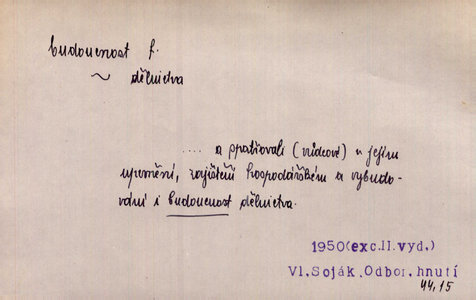 budoucnost f.
~ dělnictva
.... a spatřovali (vůdcové) v jejím
upevnění, zajištění hospodářském a vybudo-
vání i budoucnost dělnictva.
1950(exc.II.vyd.)
Vl.Soják, Odbor.hnutí
44,15